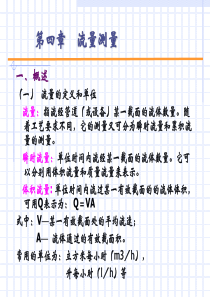 第四章 流量测量
一、概述
（一） 流量的定义和单位
流量：指流经管道（或设备）某一截面的流体数量。随
着工艺要求不同，它的测量又可分为瞬时流量和累积流
量的测量。
瞬时流量：单位时间内流经某一截面的流体数量。它可
以分别用体积流量和质量流量来表示。
体积流量：单位时间内流过某一有效截面的的流体体积，
可用Q表示为：Q=VA
式中：V—某一有效截面处的平均流速；
A— 流体通过的有效截面积。
常用的单位为：立方米每小时（m3/h），
升每小时（l/h）等